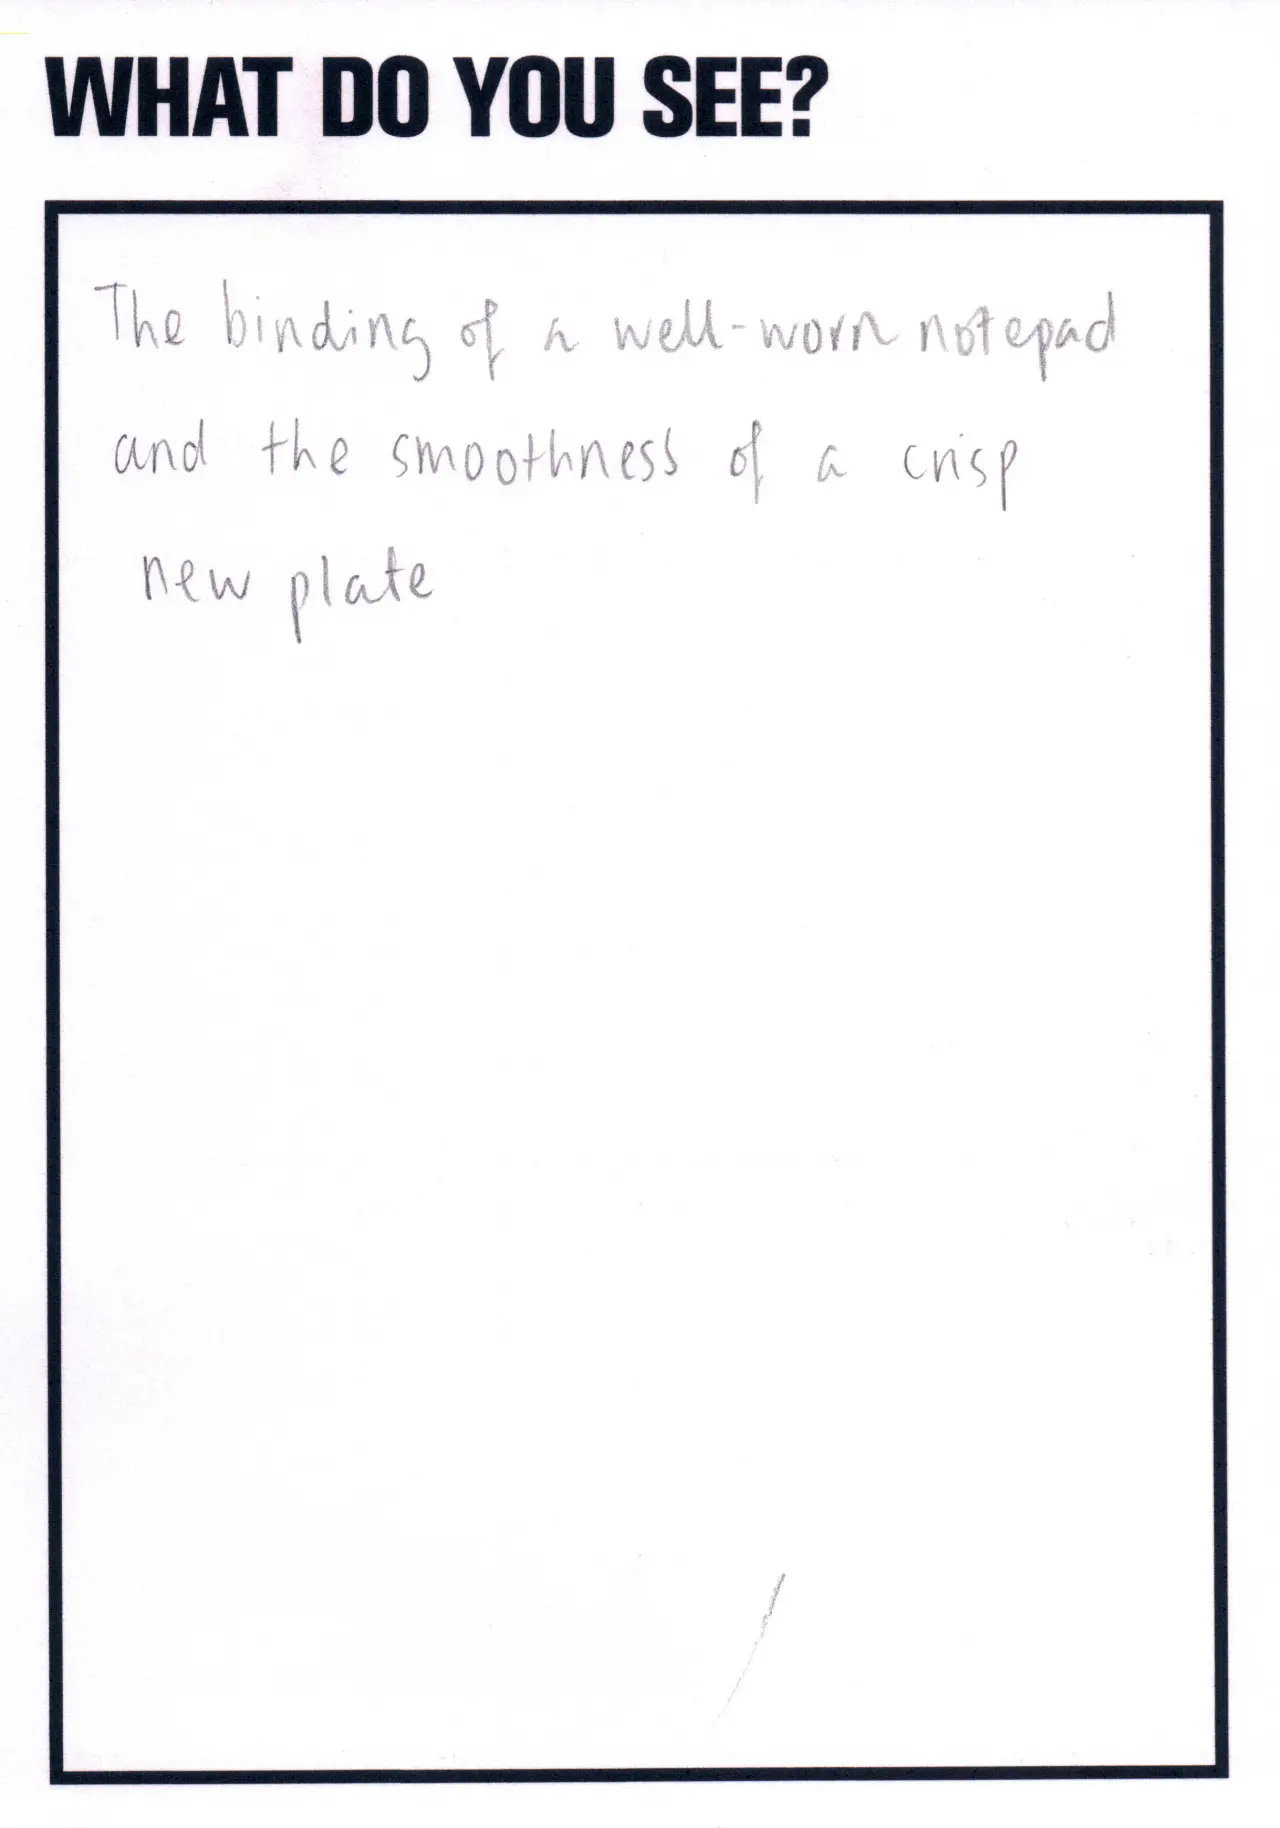 WHAT DO YOU SEE?
The binding of a well-worn notepad
and the smoothness of a crisp
new plate